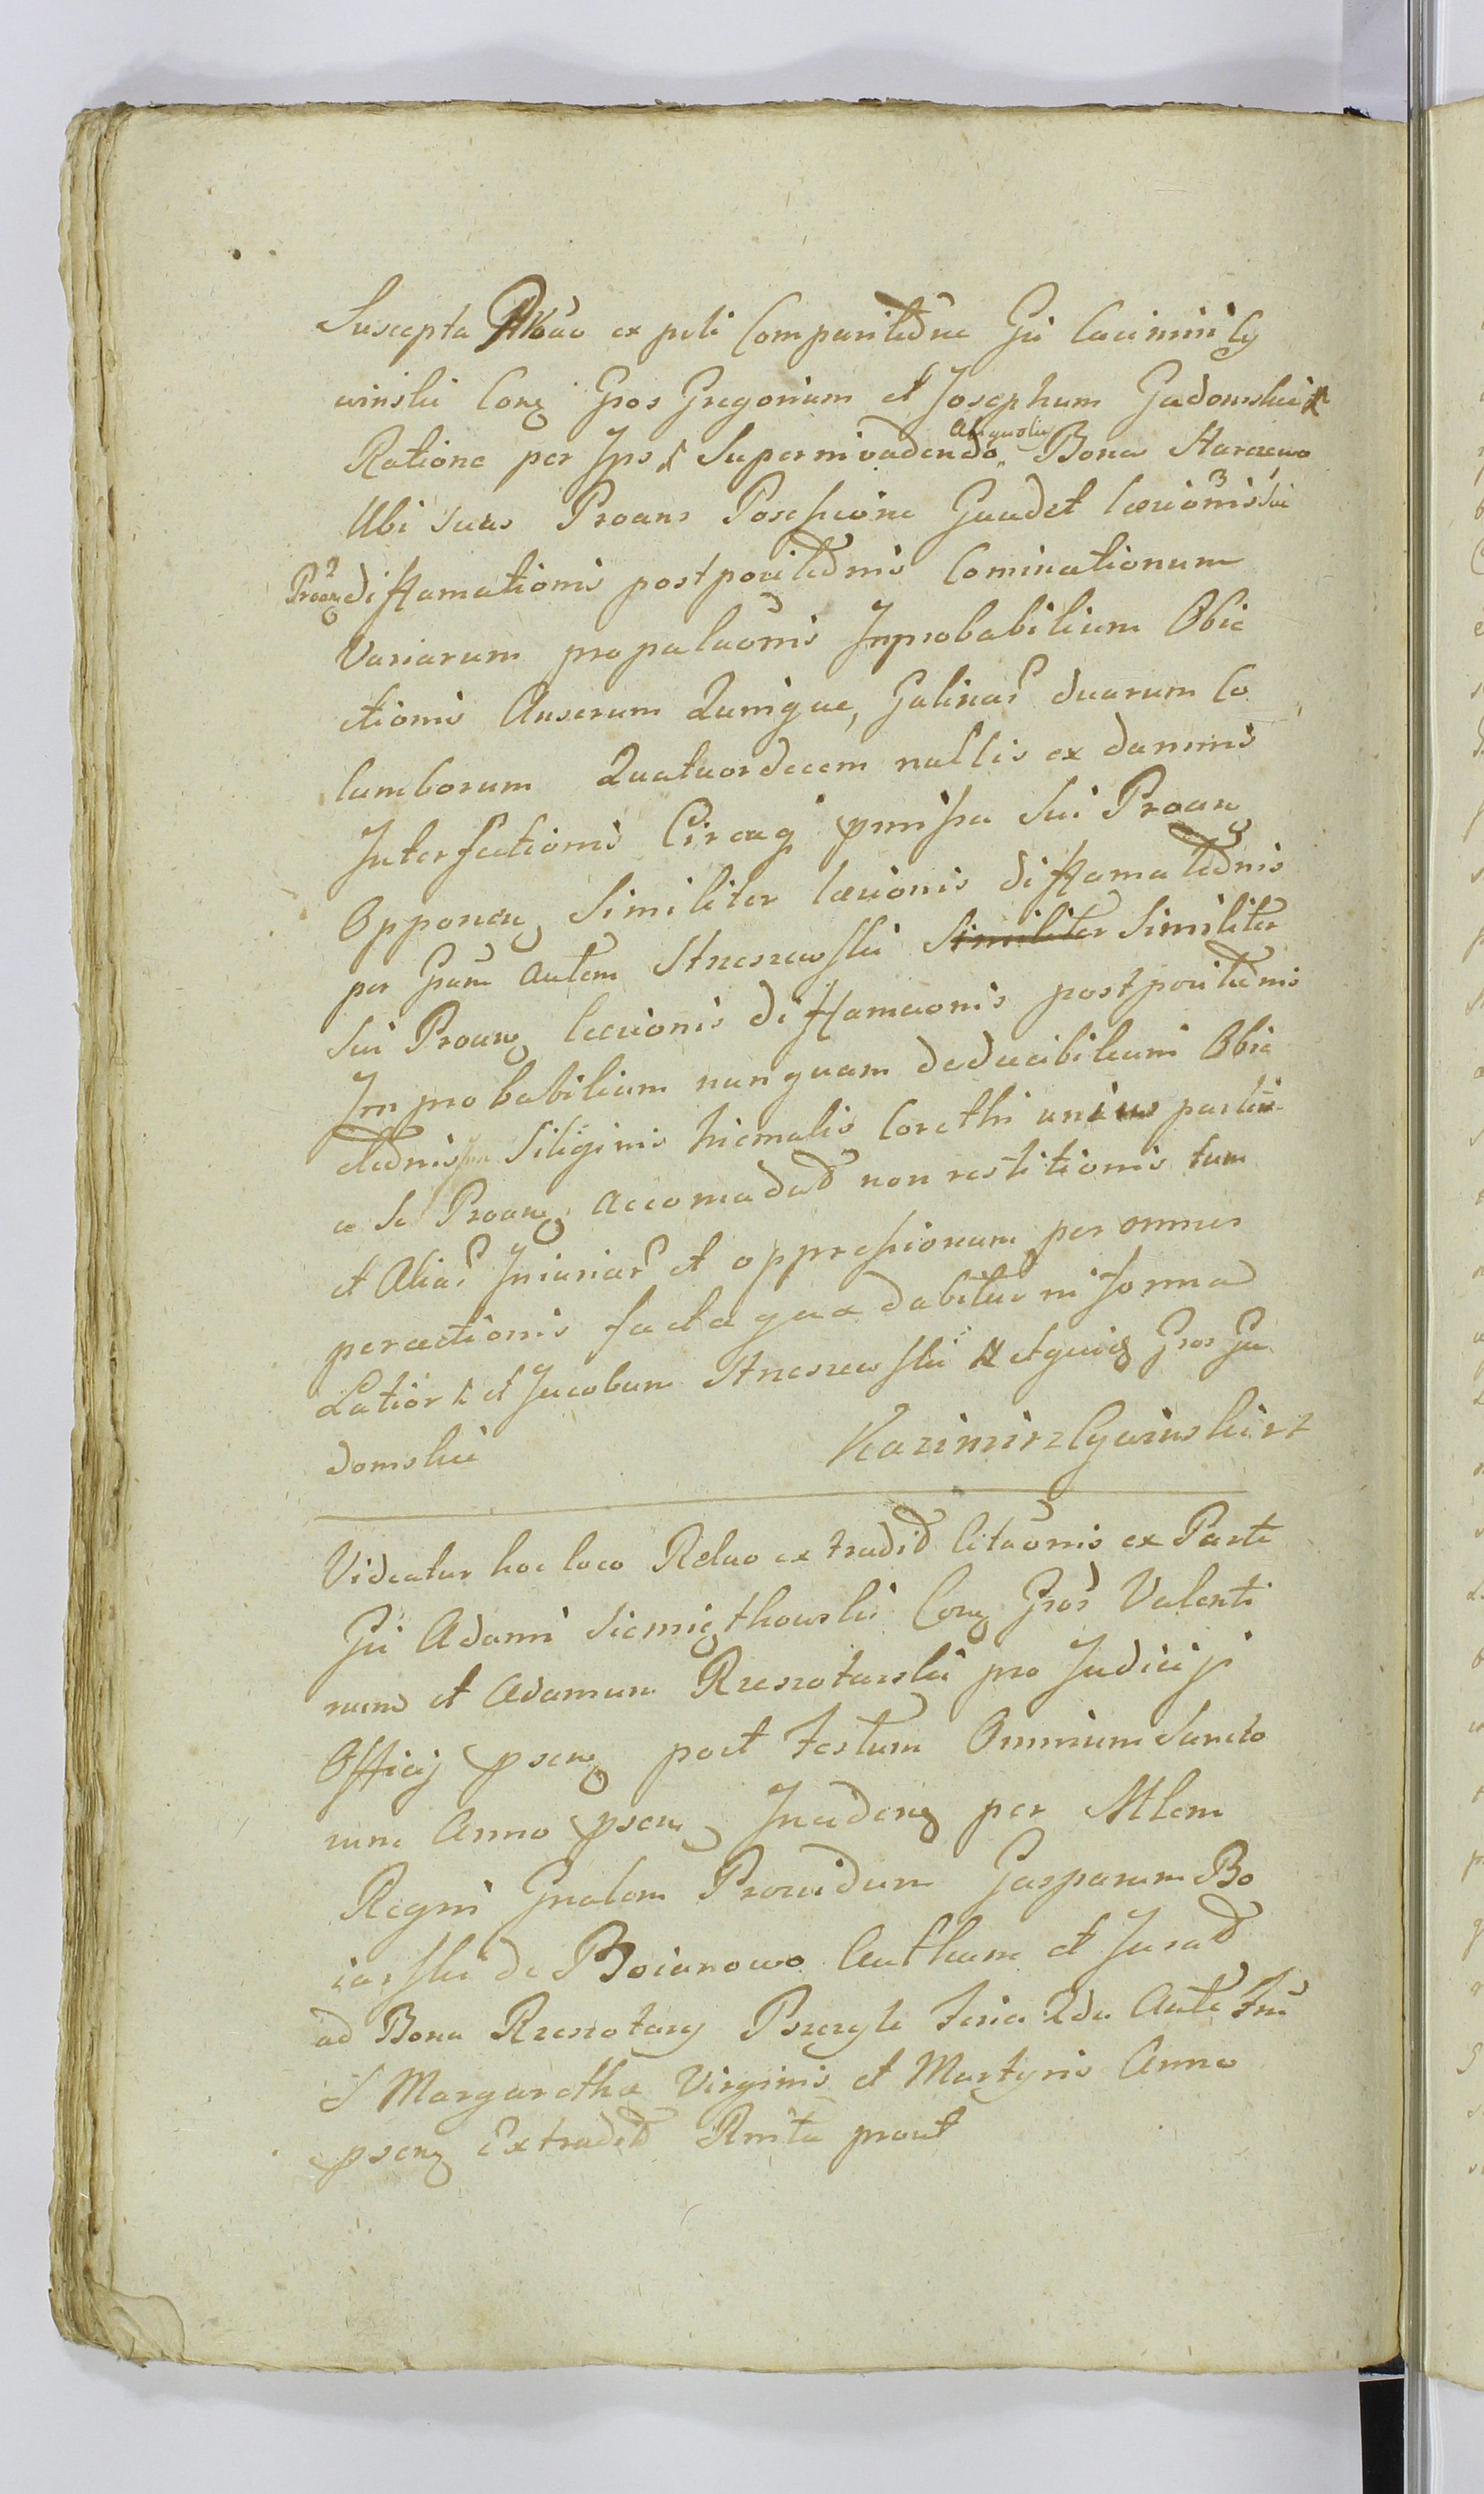 Suscepta ex pcti Comparitione Gñi Cacimiri Cy
winski Cong Gros Gregorium et Josephum Gadomskie
Ratione per Jpsos Superinvadendo aliquoties Bona Starczewo
Ubi suas Proans Posessione Gaudet læcionis sui
Proang diffamationis postpositionis Cominationum
Variarum propalaonis Improbabilium Obie
ctionis Anserum Quinque, Galinar duarum Co
lumborum Quatuordecem nullis ex damnis
Interfectionis Circaq pmissa Sui Proang
Opponeng Similiter læcionis diffamationis
per Gnum autem Strzeszewski Similiter Similiter
Sui Proang læcionis diffamaonis postpositionis
Improbabilium nunquam deducibilium Obie
ctionis Siliginis hiemalis Corethi unius partis
a se Proang accomadad non restitionis tum
et Aliar Iniuriar et oppressionum per omnes
peractionis facta quæ dabitur in Forma
Latiori et Jacobum Strzeszewski et Gros Ga
domskie Kazimirz Cywinski
Videatur hoc loco Relao extradid Citaonis ex Parte
Gñi Adami Siemigthowski Cong Gros Valenti
num et Adamum Rzeszotarski pro Judicijs
Officij pseng post Festum Omnium Sancto
rum Anno pseng Incideng per Mlem
Regni Gnalem Providum Gasparum Bo
iarski de Boianowo Authum et Jurad
ad Bona Rzeszotary Pszczyle Feria 2da Ante Ftũ
S Margarethæ Virginis et Martyris Anno
pseng Extradid prout